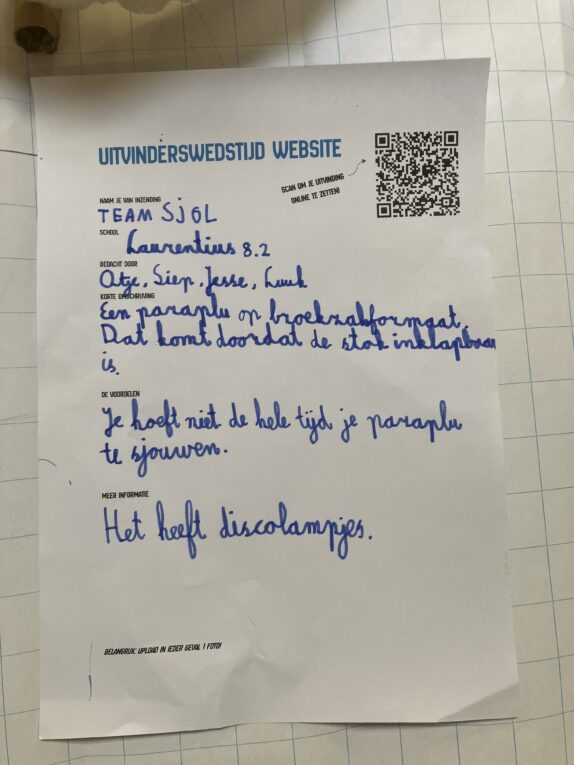 UITVINDERSWEDSTIJD WEBSITE
SCAN OM JE UITVINDING
ONLINE TE ZETTEN!
NAAM JE VAN INZENDING
TEAM SJOL
SCHOOL
Laurentius 8.2
BEDACHT DOOR
Otje, Siep, Jesse, Luuk
KORTE OMSCHRIJVING
Een paraplu op broekzakformaat.
Dat komt doordat de stok inklapbaar
is.
DE VOORDELEN
Je hoeft niet de hele tijd je paraplu
te sjouwen.
MEER INFORMATIE
Het heeft discolampjes.
BELANGRIJK: UPLOAD IN IEDER GEVAL 1 FOTO!